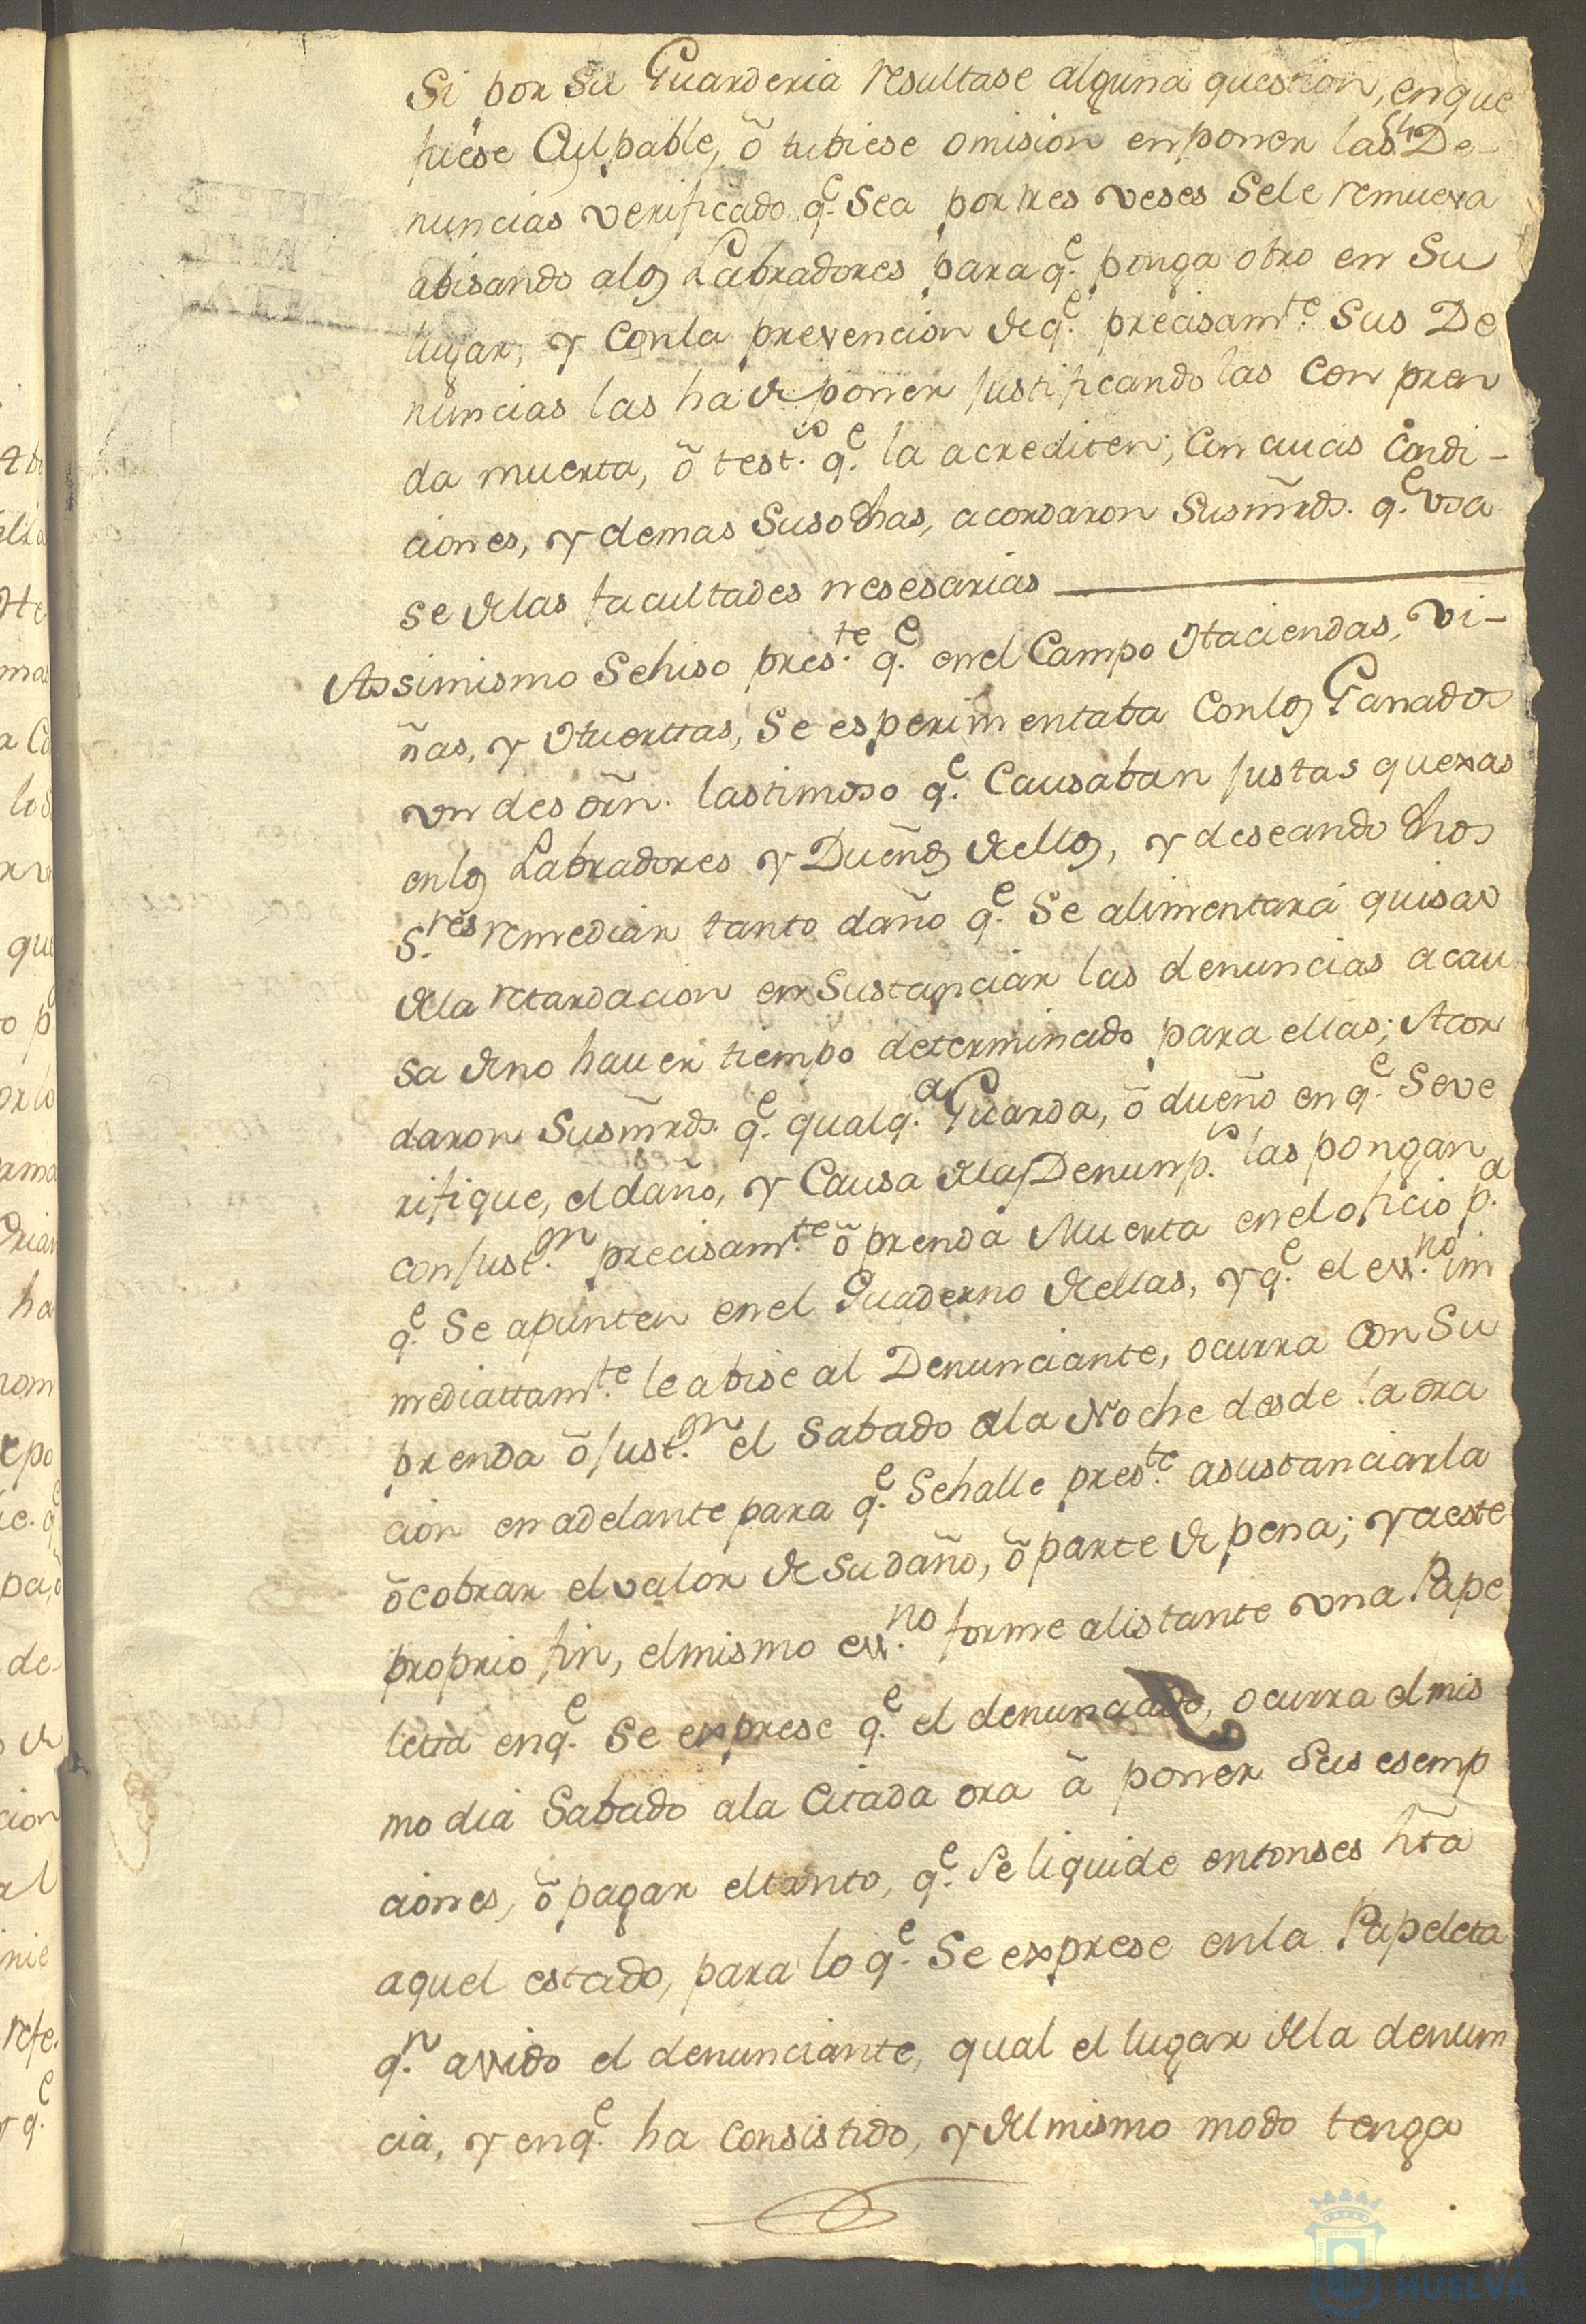 Si por su Guarderia resultase alguna question, enque
fuese Culpable, ô tubiese omision enponer las De-
nuncias verificado q.e Sea por tres veses Sele remueva
abisando alos Labradores para q.e ponga otro en Su
lugar, y conla prevencion de q.e precisam.te Sus De
nuncias las ha de poner justificandolas con pren
da muerta, õ test.io q.e la acrediten; Con cuias condi-
ciones, y demas Susodhas, acordaron Susmrds. q.e vsa
se delas facultades nesesarias
Assimismo Sehiso pres.te q.e en el Campo Haciendas, vi-
ñas, y Huerttas, Se esperimentaba Conlos Ganados
vn desorñ. lastimoso q.e Causaban justas quexas
enlos Labradores y Dueños dellos, y deseando dhos
S.res remediar tanto daño q.e Se alimentará quisas
dela retardacion en Sustanciar las denuncias acau
sa deno hauer tiempo determinado para ellas; Acor
daron Susmrds. q.e qualq.a Guarda, õ dueño en q.e Seve
rifique, el daño, y Causa delas Denunp.s las pongan
con just.on precisam.te õ prenda Muerta en el oficio p.a
q.e Se apunten en el Quaderno dellas, y q.e el ess.no im
mediattam.te le abise al Denunciante, ocurra con Su
prenda õ just.on el Sabado ala Noche desde la ora
cion en adelante para q.e Sehalle pres.te asustanciarla
õ cobrar el valor de su daño, õ parte de pena; y aeste
proprio fin, elmismo ess.no forme alistante vna Pape
letta enq.e Se exprese q.e el denunciado, ocurra elmis
mo dia Sabado ala Citada ora â poner Sus esemp
ciones, õ pagar eltanto, q.e Se liquide entonses hta
aquel estado, para lo q.e Se exprese enla Papeleta
q.n avido el denunciante, qual el lugar dela denun
cia, y enq.e ha consistido, y delmismo modo tenga
HUELVA